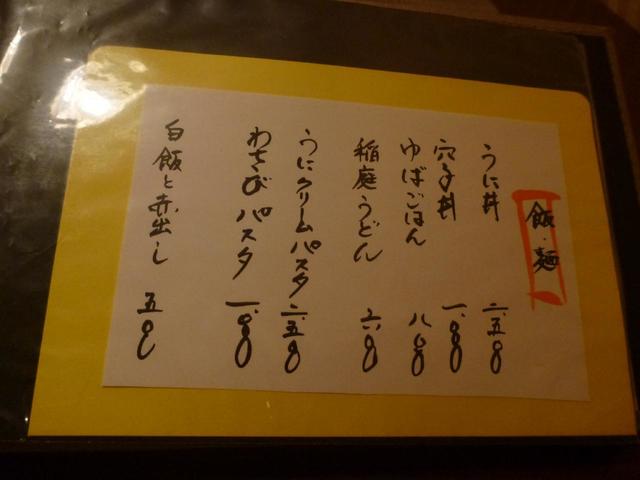 飯・麺
うに丼 二、五〇〇
穴子丼 一、〇〇〇
ゆばごはん 八〇〇
稲庭うどん 六〇〇
うにクリームパスタ 二、五〇〇
わさびパスタ 一、〇〇〇
白飯と赤出し 五〇〇